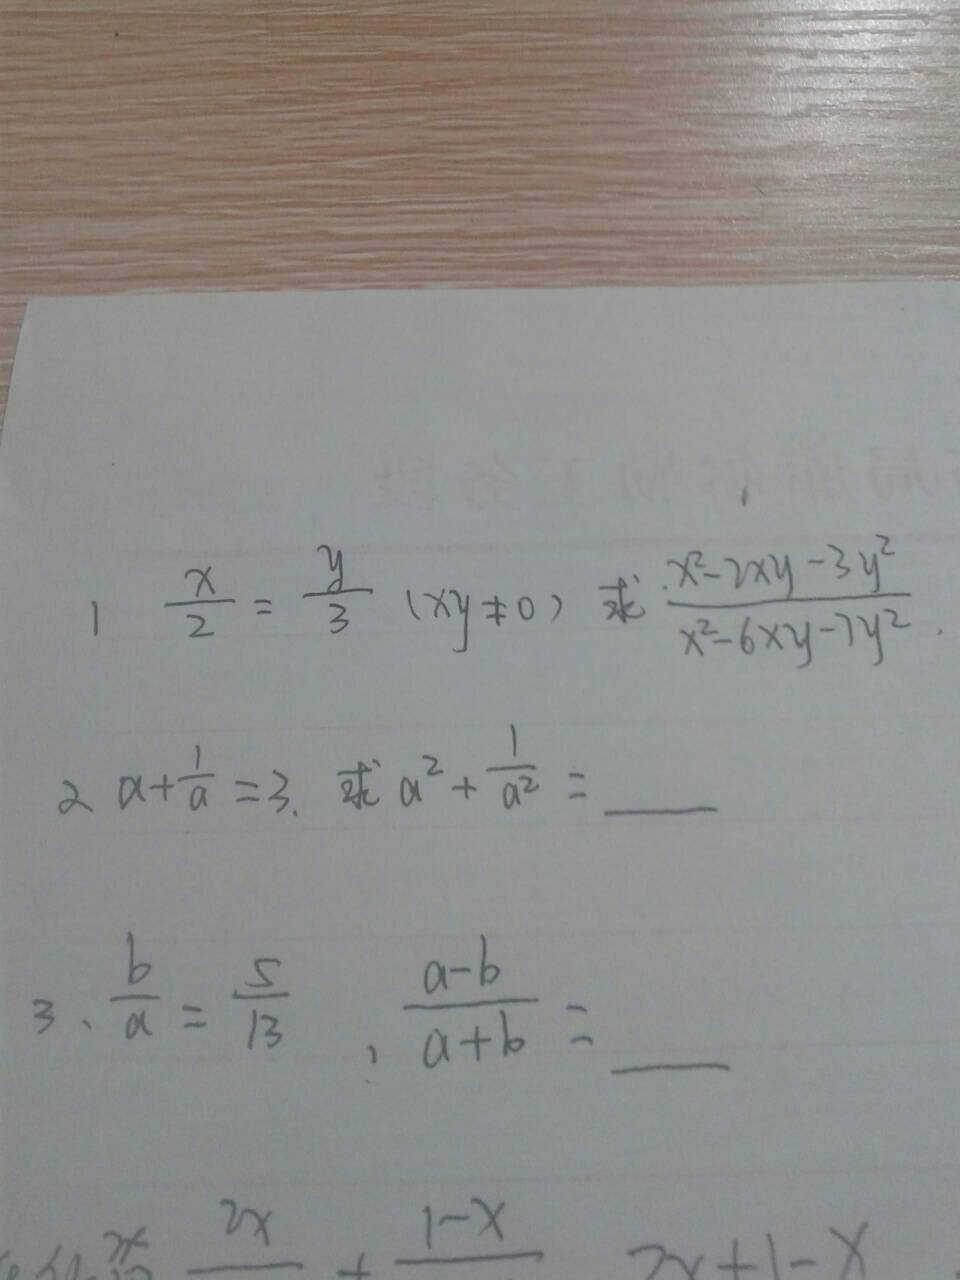 1 x/2 = y/3 (xy≠0) 求 x²-2xy-3y²/x²-6xy-7y².
2 a+1/a=3. 求a²+1/a²=____
3、b/a=5/13, a-b/a+b=____
2x + 1-x 2x+1-x